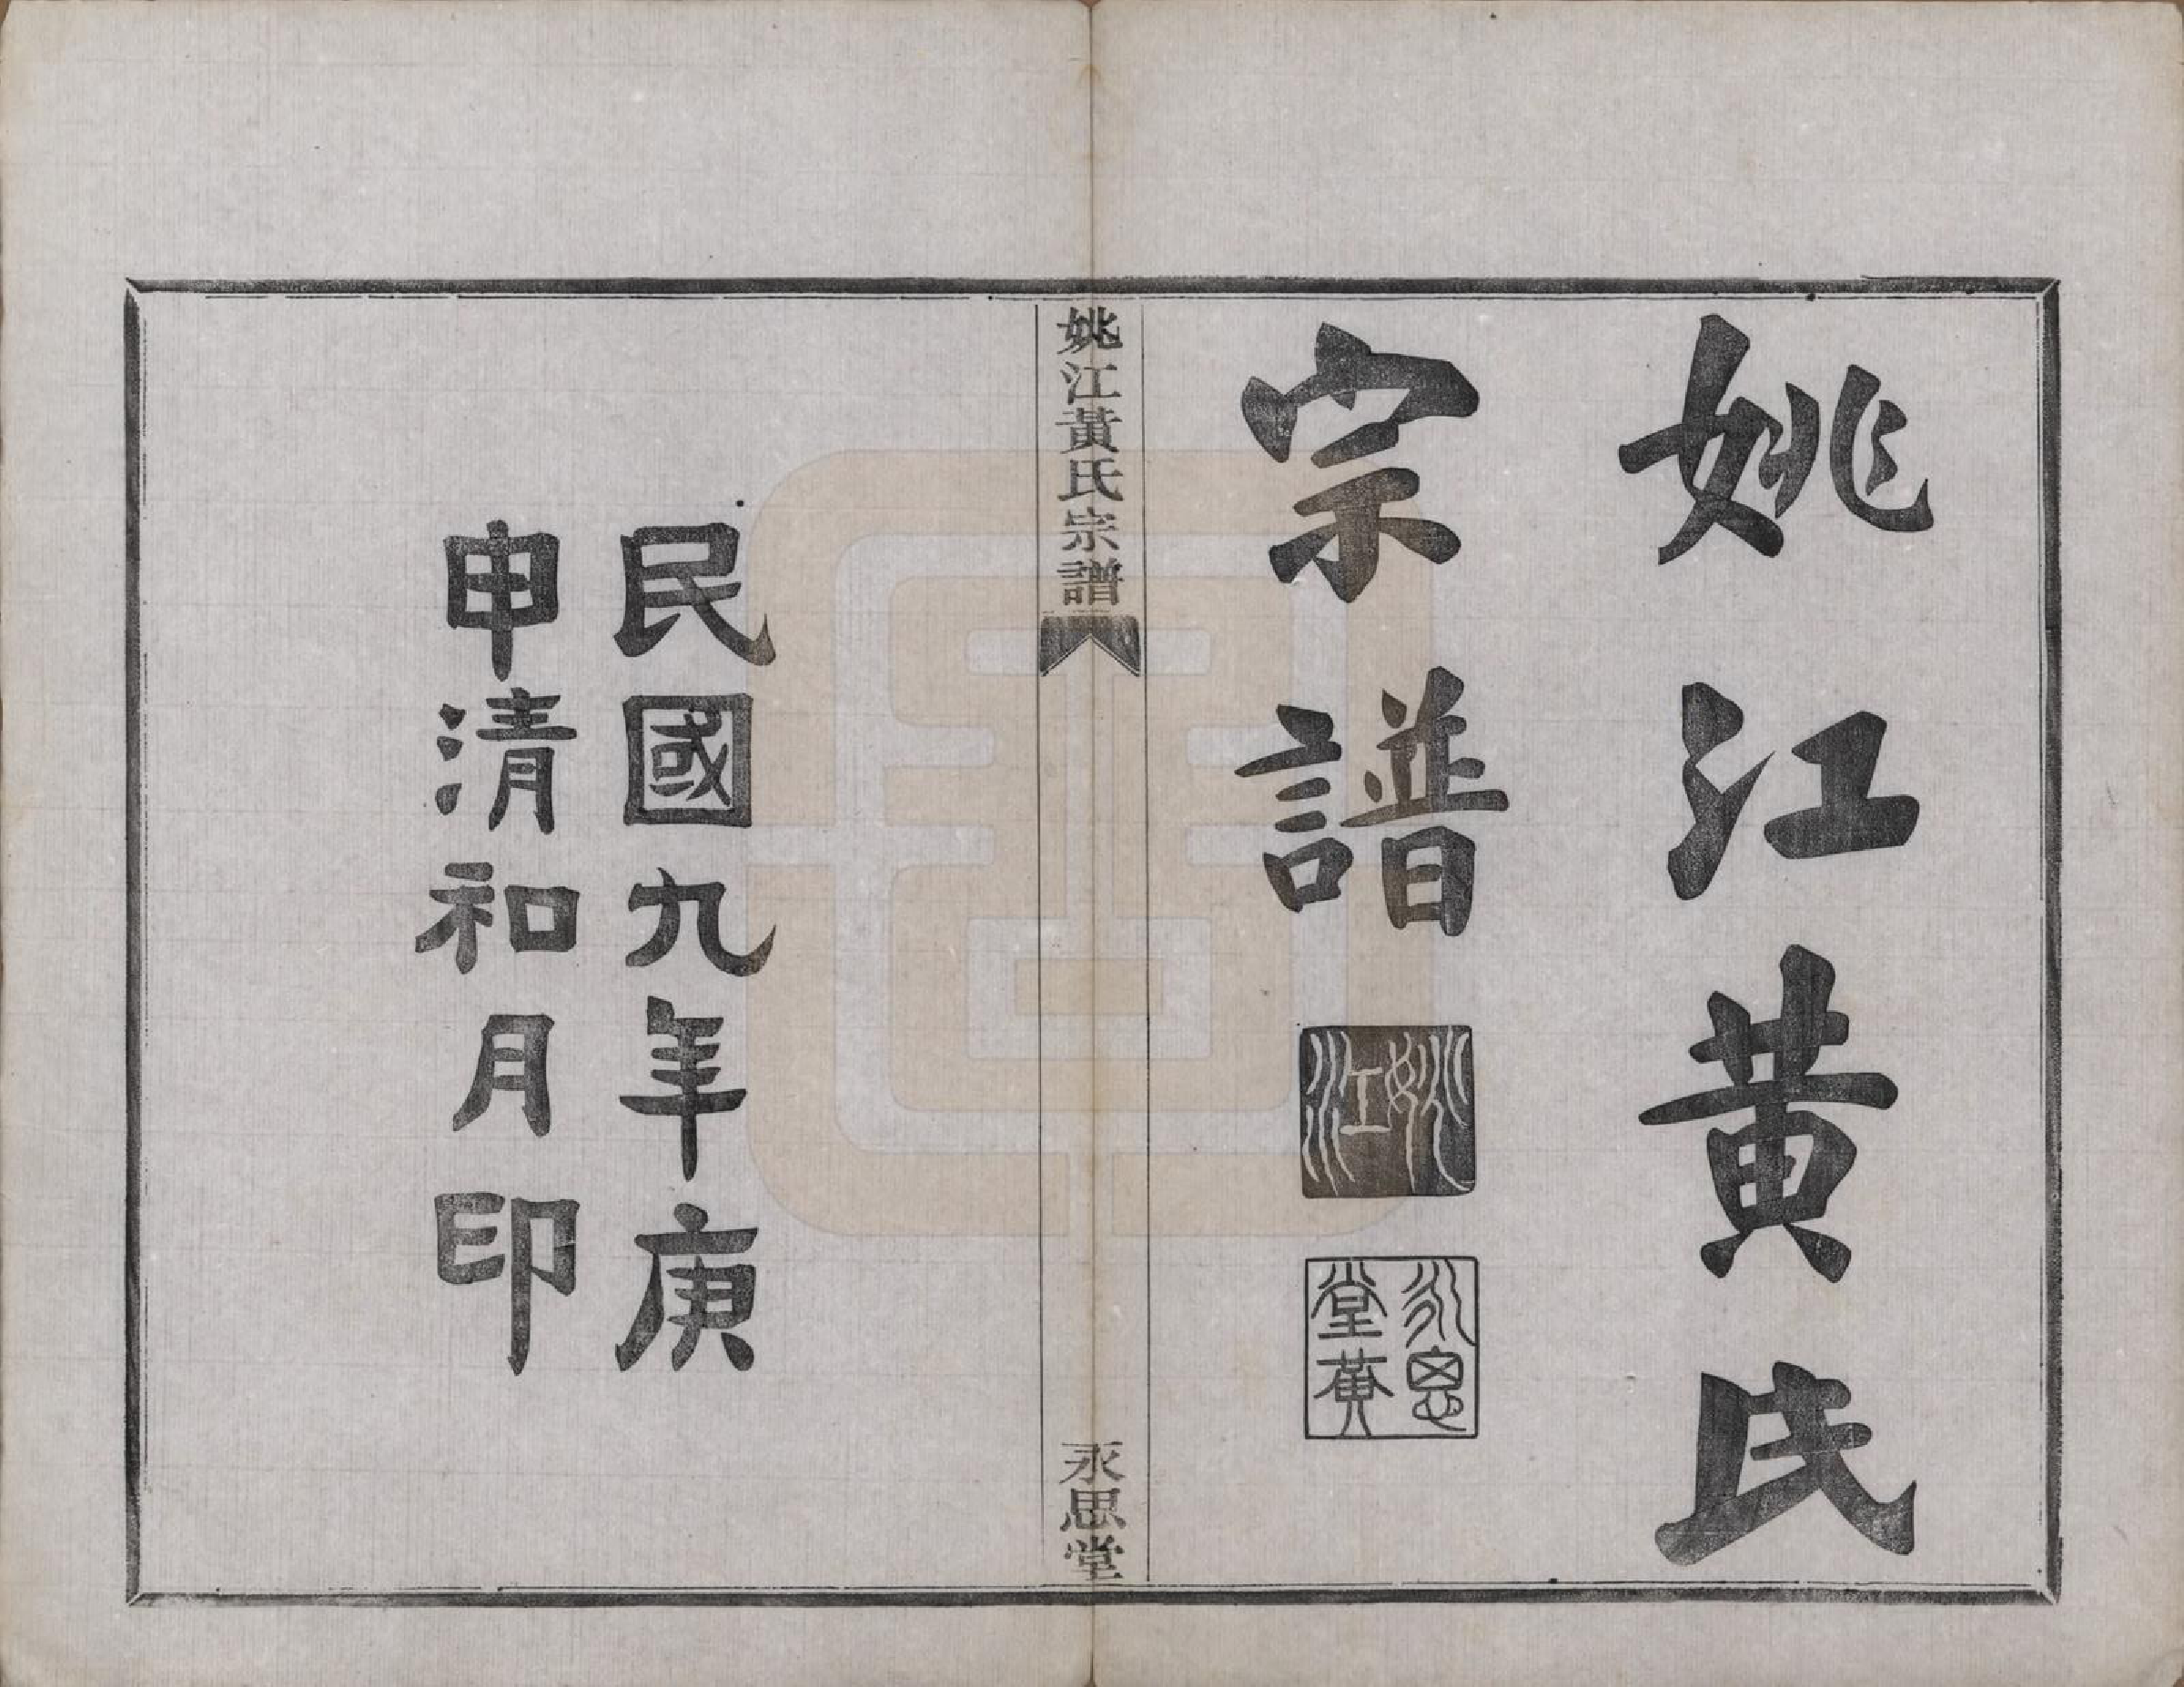 姚江黃氏
宗譜
姚江
永思
堂黃
姚江黃氏宗譜
永思堂
民國九年庚
申清和月印